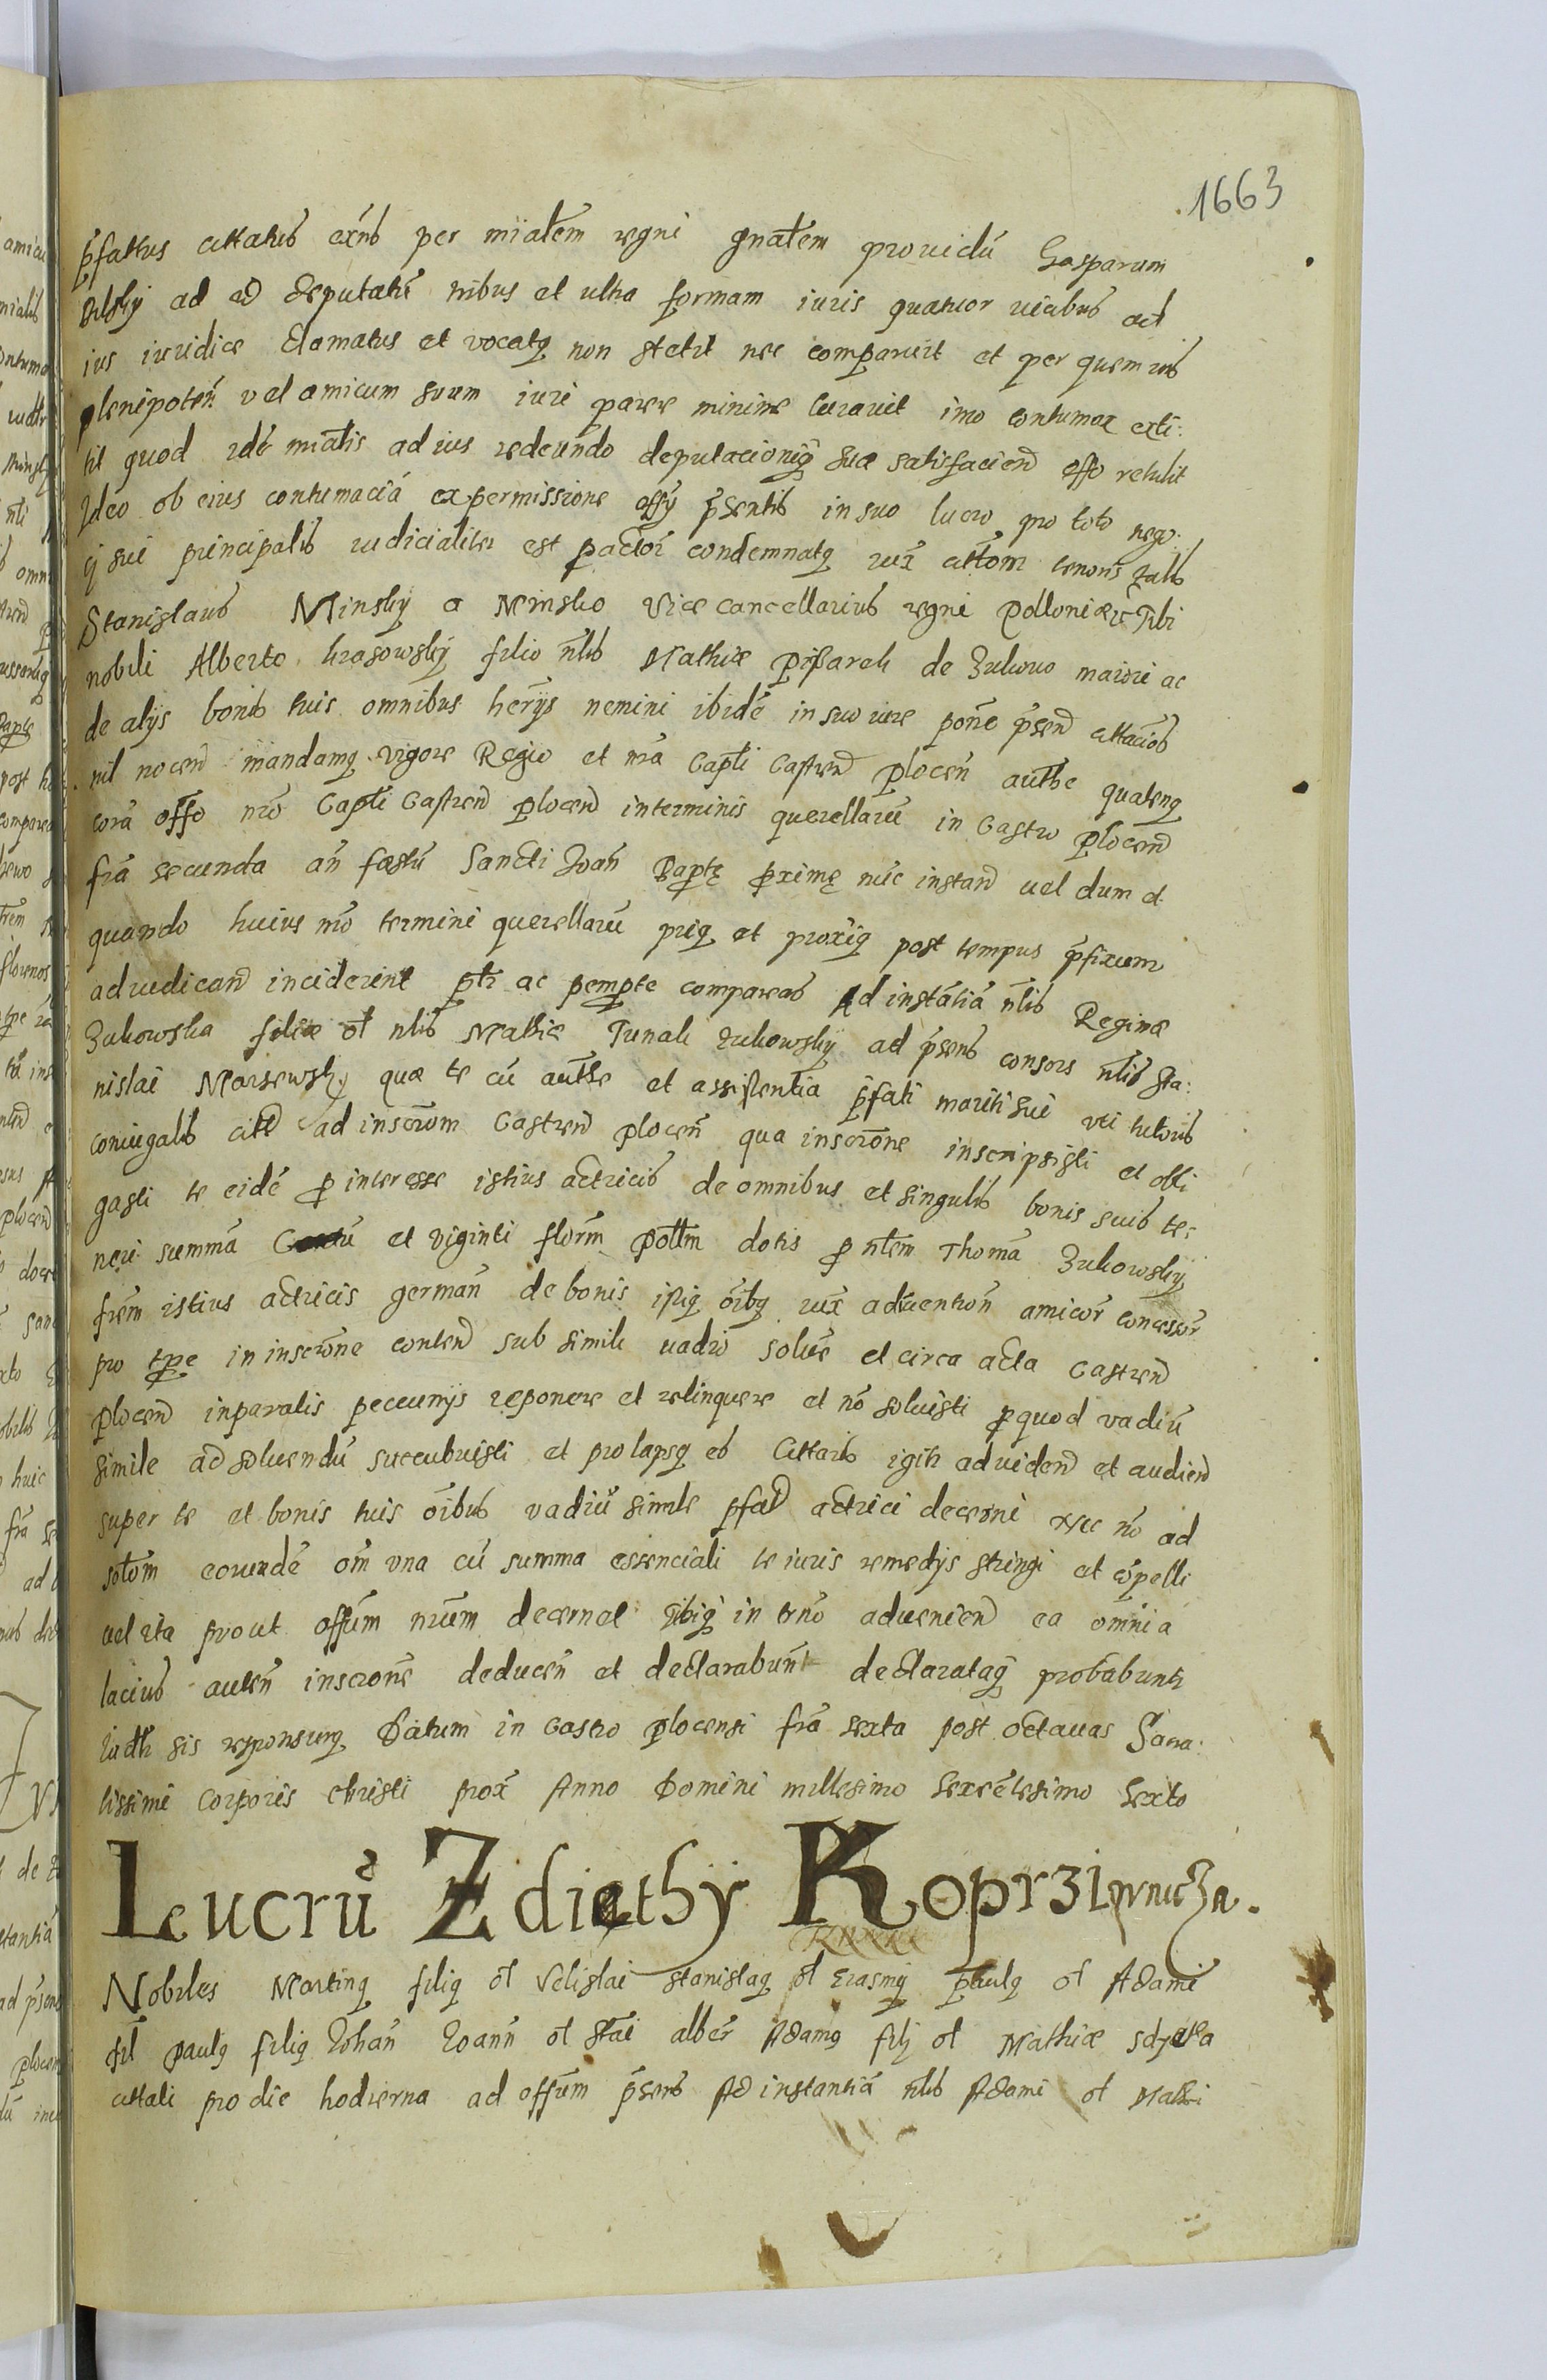 1663
p̃fattus cittatus exñs per mĩalem regni gñalem prouidũ Gasparum
Bilsky ad id deputatũ tribus et ultra formam iuris quatuor vicibus ad
ius iuridice clamatus et vocatq non stetit nec comparuit et per quemuis
plenipoteñ vel amicum suum iuri parere minime curauit imo contumax exti:
tit quod idẽ miãlis ad ius redeundo deputacioniq suæ satisfaciend offo retulit
Ideo ob eius contumaciã ex permissione offy p̃sentis in suo lucro pro toto nego.
ÿ sui principalis iudicialiter est p actoř condemnatq iux̃ cittõm tenoris talis
Stanislaus Minsky a Minsko Vice cancellarius regni Polloniæ &c Tibi
nobili Alberto Krasowsky filio ñlis Mathiæ Pissarek de Zukowo maiori ac
de alijs bonis tuis omnibus herijs nemini ibidẽ in suo iure pone p̃send cittaciõs
nil nocend mandamq vigore Regio et nr̃a Capłi Castreñ Plocen authe quatenq
corã offo nr̃o Capłi Castreñ Plocend in terminis querellarũ in Castro Plocend
fr̃a secunda añ festũ Sancti Joañ Baptę proximę nũc instand uel dum et
quando huius mõ termini querellarũ priq et proxiq post tempus p̃fixum
adiudicand inciderint pltr ac pempte compareas Ad instãtiã ñlis Reginæ
Zukowska filiæ ol ñlis Mathiæ Tunak Zukowskÿ ad p̃sens consors ñlis Sta:
nislai Marsewsky quæ te cũ authe et assistentia p̃fati mariti sui vti tutoris
coniugalis citt ad inscrõm Castreñ Ploceñ qua inscrõne inscripsisti et obli
gasti te eidẽ p interesse istius actricis de omnibus et singulis bonis suis te:
neri summã Centũ et viginti florm Pollm dotis p ñlem Thomã Zukowskÿ
frẽm istius actricis germañ de bonis ipiq oĩbq iux̃ aduentioñ amicoř concessoř
pro tpe in inscrõne contend sub simili vadio soluẽ et circa acta Castreñ
Plocend in paratis peccunÿs reponere et relinquere et nõ soluisti p quod vadiũ
simile ad soluendũ succubuisti et prolapsq es Cittaris igitr ad videnđ et audienđ
super te et bonis tuis oĩbus vadiũ simile p̃fat actrici decerni nec nõ ad
solõm eoundẽ oĩm vna cũ summa essenciali te iuris remedÿs stringi et cõpelli
uel ita prout offum nr̃um decernet Tibiq in trno aduenienđ ea omnia
lacius auteñ inscrõne deduceñ et declarabunt declarataq probabuntr
Iudtr sis responsurq Datum in Castro Plocensi fr̃a sexta post octauas Sacra:
tissimi Corporis Christi prox̃ Anno Domini millesimo Sexcẽtesimo Sexto
Lucrũ Zdiethÿ Koprziwnicza.
Nobiles Martinq filiq ol Velislai Stanislaq ol Erasmÿ Paulq ol Adami
fil Paulq filiq Johañ Joann ol Stai alber Adamq filÿ ol Mathiæ Sdzetha
cittati pro die hodierna ad offum p̃sens Ad instantiã ñlis Adami ol Mathi